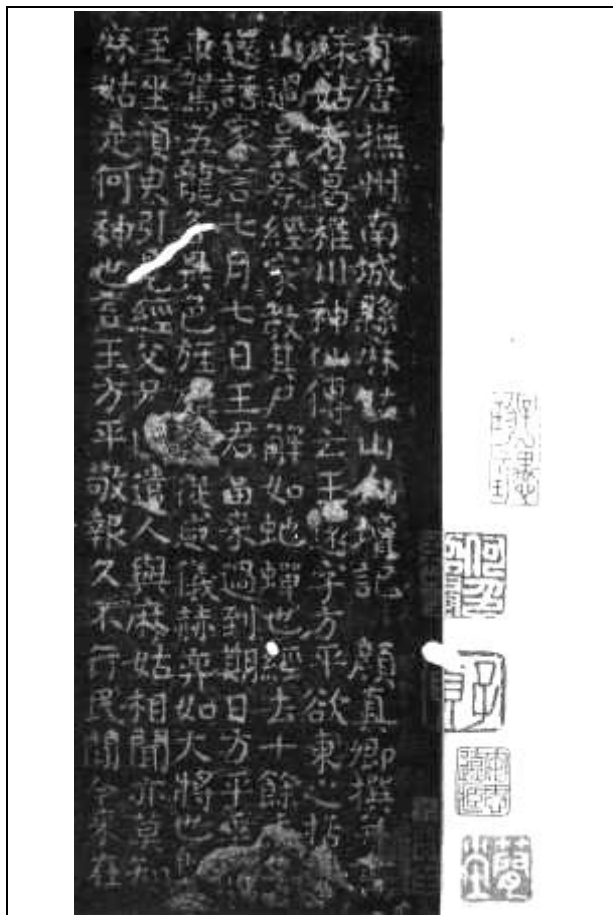 有唐撫州南城縣麻姑山仙壇記 顏真卿撰并書
麻姑者葛稚川神仙傳云王遠字方平欲東之括
山過吳蔡經家教其尸解如蛇蟬也經去十餘
還語家言七月七日王君當來過到期日方平乘
車駕五龍各異色旌從威儀赫弈如大將也
至坐須臾引見經父兄遣人與麻姑相聞亦莫知
麻姑是何神也言王方平敬報久不行民間今來在
子貞